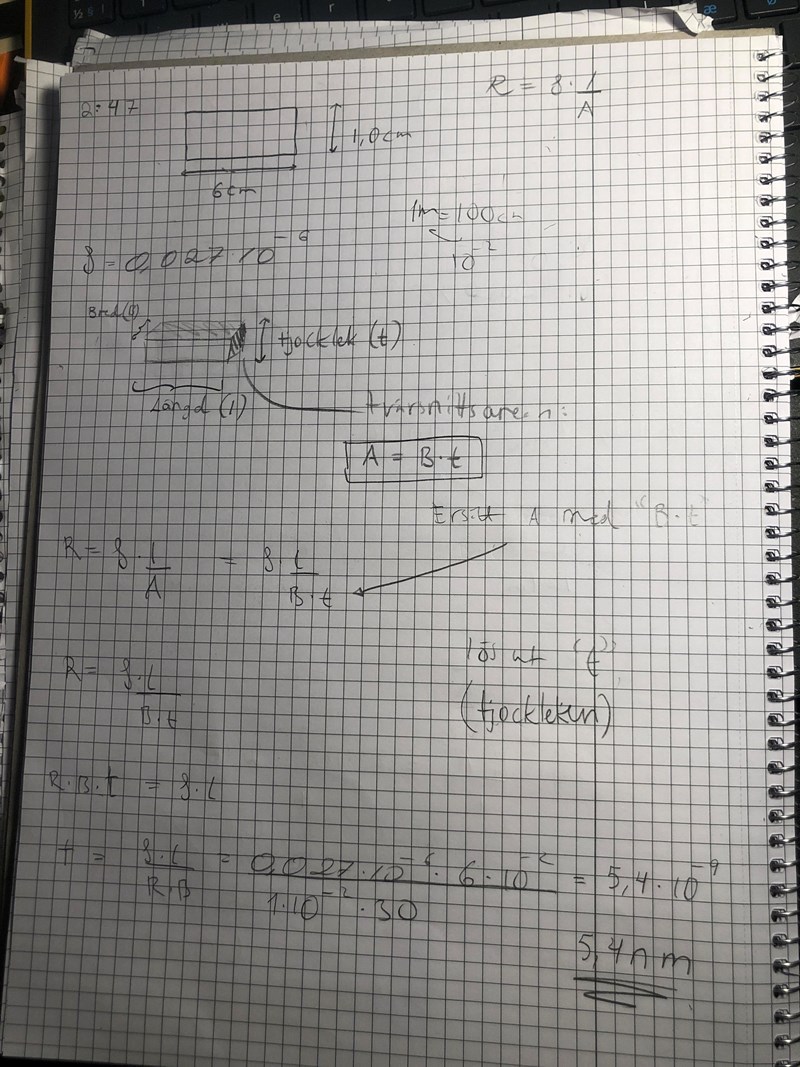 2:47
R = ρ · l/A
1,0cm
6cm
1m = 100cm
10⁻²
ρ = 0,027·10⁻⁶
Bred(B)
tjocklek (t)
Längd (l)
tvärsnittsarean:
A = B·t
Ersätt A med "B·t"
R = ρ · l/A = ρ · l/B·t
lös ut "t"
(tjockleken)
R = ρ·l/B·t
R·B·t = ρ·l
t = ρ·l/R·B = 0,027·10⁻⁶ · 6·10⁻²/1·10⁻²·30 = 5,4·10⁻⁹
5,4nm